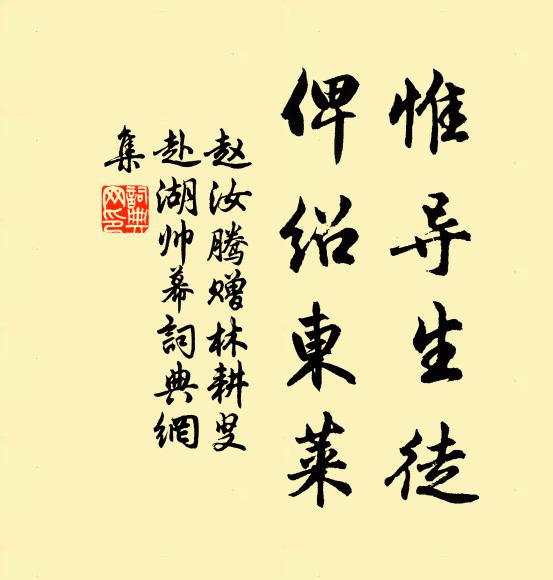 惟导生徒
俾绍東莱
赵汝腾赠林耕叟
赴湖帅幕詞典網
集
詞典網印